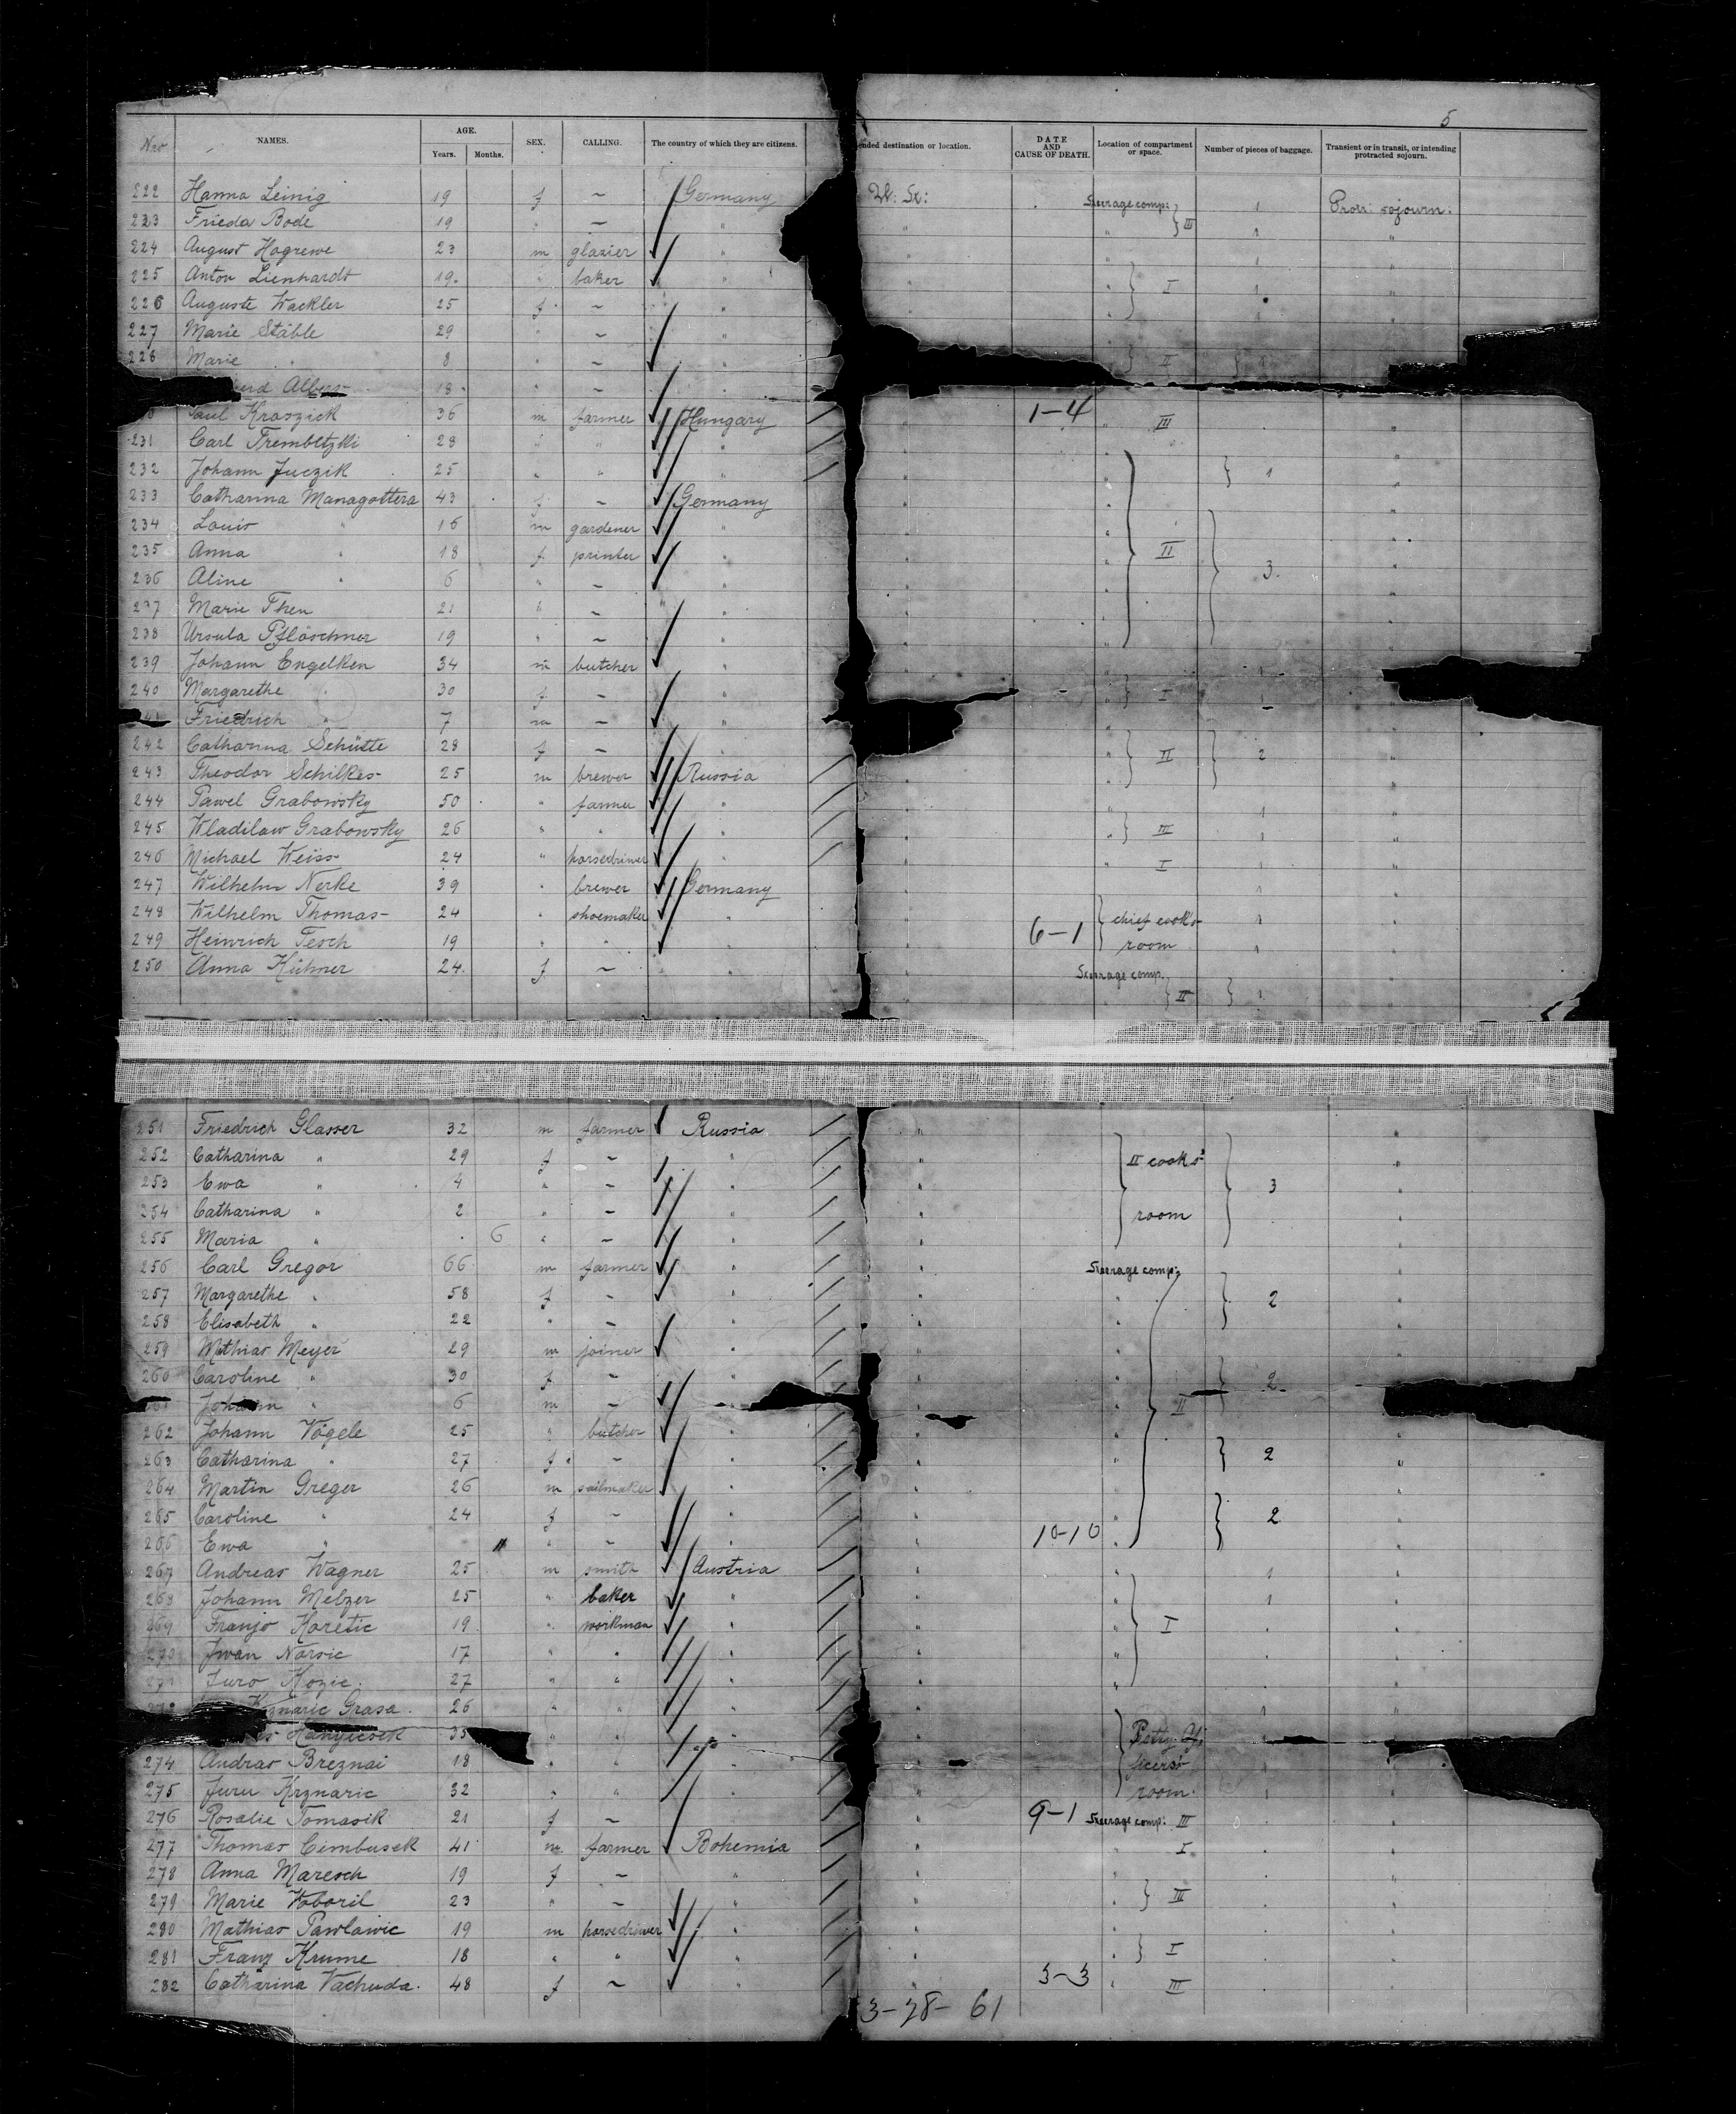 5
Nro NAMES. AGE. Years. Months. SEX. CALLING. The country of which they are citizens. ended destination or location. DATE AND CAUSE OF DEATH. Location of compartment or space. Number of pieces of baggage. Transient or in transit, or intending protracted sojourn.
222 Hanna Leinig 19 f — Germany Steerage comp: 1 Protr: sojourn.
223 Frieda Bode 19 " — " " III 1 "
224 August Hogrewe 23 m glazier " " 1 "
225 Anton Lienhardt 19 " baker " " I 1 "
226 Auguste Wackler 25 f — " "
227 Marie Stäble 29 " — "
228 Marie " 8 " — " II
Albers 18 " — "
Paul Kraszick 36 m farmer Hungary 1-4 " III "
231 Carl Trembetzki 28 " " " "
232 Johann Juczik 25 " " " 1 "
233 Catharina Managottera 43 f — Germany " "
234 Louis " 16 m gardener " " "
235 Anna " 18 f printer " " II "
236 Aline " 6 " — " 3 "
237 Marie Then 21 " — " "
238 Ursula Pflöschner 19 " — " "
239 Johann Engelken 34 m butcher " 1
240 Margarethe " 30 f — " I
41 Friedrich " 7 m — "
242 Catharina Schütte 28 f — " II 2 "
243 Theodor Schilkes 25 m brewer Russia " "
244 Pawel Grabowsky 50 " farmer " " 1 "
245 Wladilaw Grabowsky 26 " " " " III 1 "
246 Michael Weiss 24 " horsedriwer " " I "
247 Wilhelm Nerke 39 " brewer Germany " 1 "
248 Wilhelm Thomas 24 " shoemaker " " chief cook's 1 "
249 Heinrich Tesch 19 " " " " 6-1 room 1 "
250 Anna Hühner 24 f — " " Steerage comp. II 1 "
251 Friedrich Glasser 32 m farmer Russia " "
252 Catharina " 29 f — " " II cook's "
253 Ewa " 4 " — " " 3 "
254 Catharina " 2 " — " " room "
255 Maria " 6 " — " " "
256 Carl Gregor 66 m farmer " " Steerage comp: "
257 Margarethe " 58 f — " " " 2 "
258 Elisabeth " 22 " — " " " "
259 Mathias Meyer 29 m joiner " " " "
260 Caroline " 30 f — " " " 2
Johann " 6 m — " " " II
262 Johann Vögele 25 " butcher " " " "
263 Catharina " 27 f — " " " 2 "
264 Martin Greger 26 m sailmaker " " "
265 Caroline " 24 f — " " " 2 "
266 Ewa " 11 " — " " 10-10 " "
267 Andreas Wagner 25 m smith Austria " " 1 "
268 Johann Melzer 25 " baker " " " 1 "
269 Franjo Horetic 19 " workman " " " I " "
270 Jwan Narsic 17 " " " " " " "
271 Juro Kozic 27 " " " " " " "
272 Grasa 26 " " " " 1 "
35 " " " " Petty Of-
274 Andras Breznai 18 " " " " ficers'
275 Juru Krznaric 32 " " " " room. "
276 Rosalie Tomasik 21 f — " 9-1 Steerage comp: III " "
277 Thomas Cimbusek 41 m farmer Bohemia " " I " "
278 Anna Maresch 19 f — " " " "
279 Marie Woboril 23 " — " " " III " "
280 Mathias Pawlawic 19 m horsedriwer " " " "
281 Franz Krume 18 " " " " " I " "
282 Catharina Vachuda 48 f — " " 3-3 " III " "
3-28-61